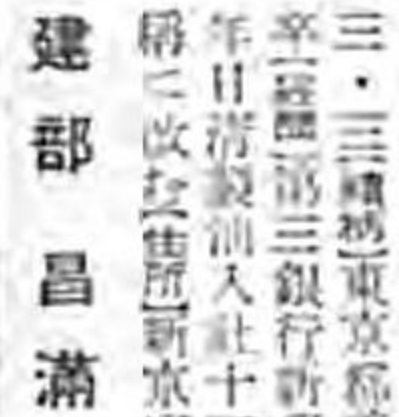 三・三續柄】東京
卒【經歷】三銀行新
年日清製油入社十
稱に改む【住所】新京
建部昌滿